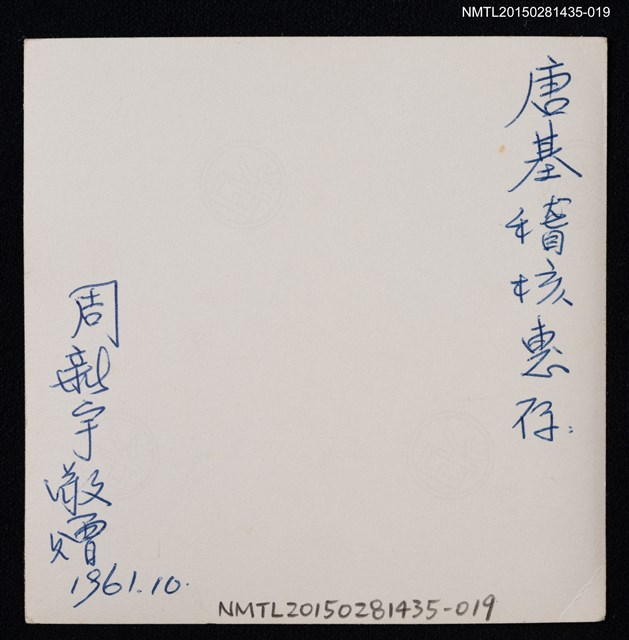 NMTL20150281435-019
唐基稽核惠存:
周新宇敬贈
1961.10.
NMTL20150281435-019